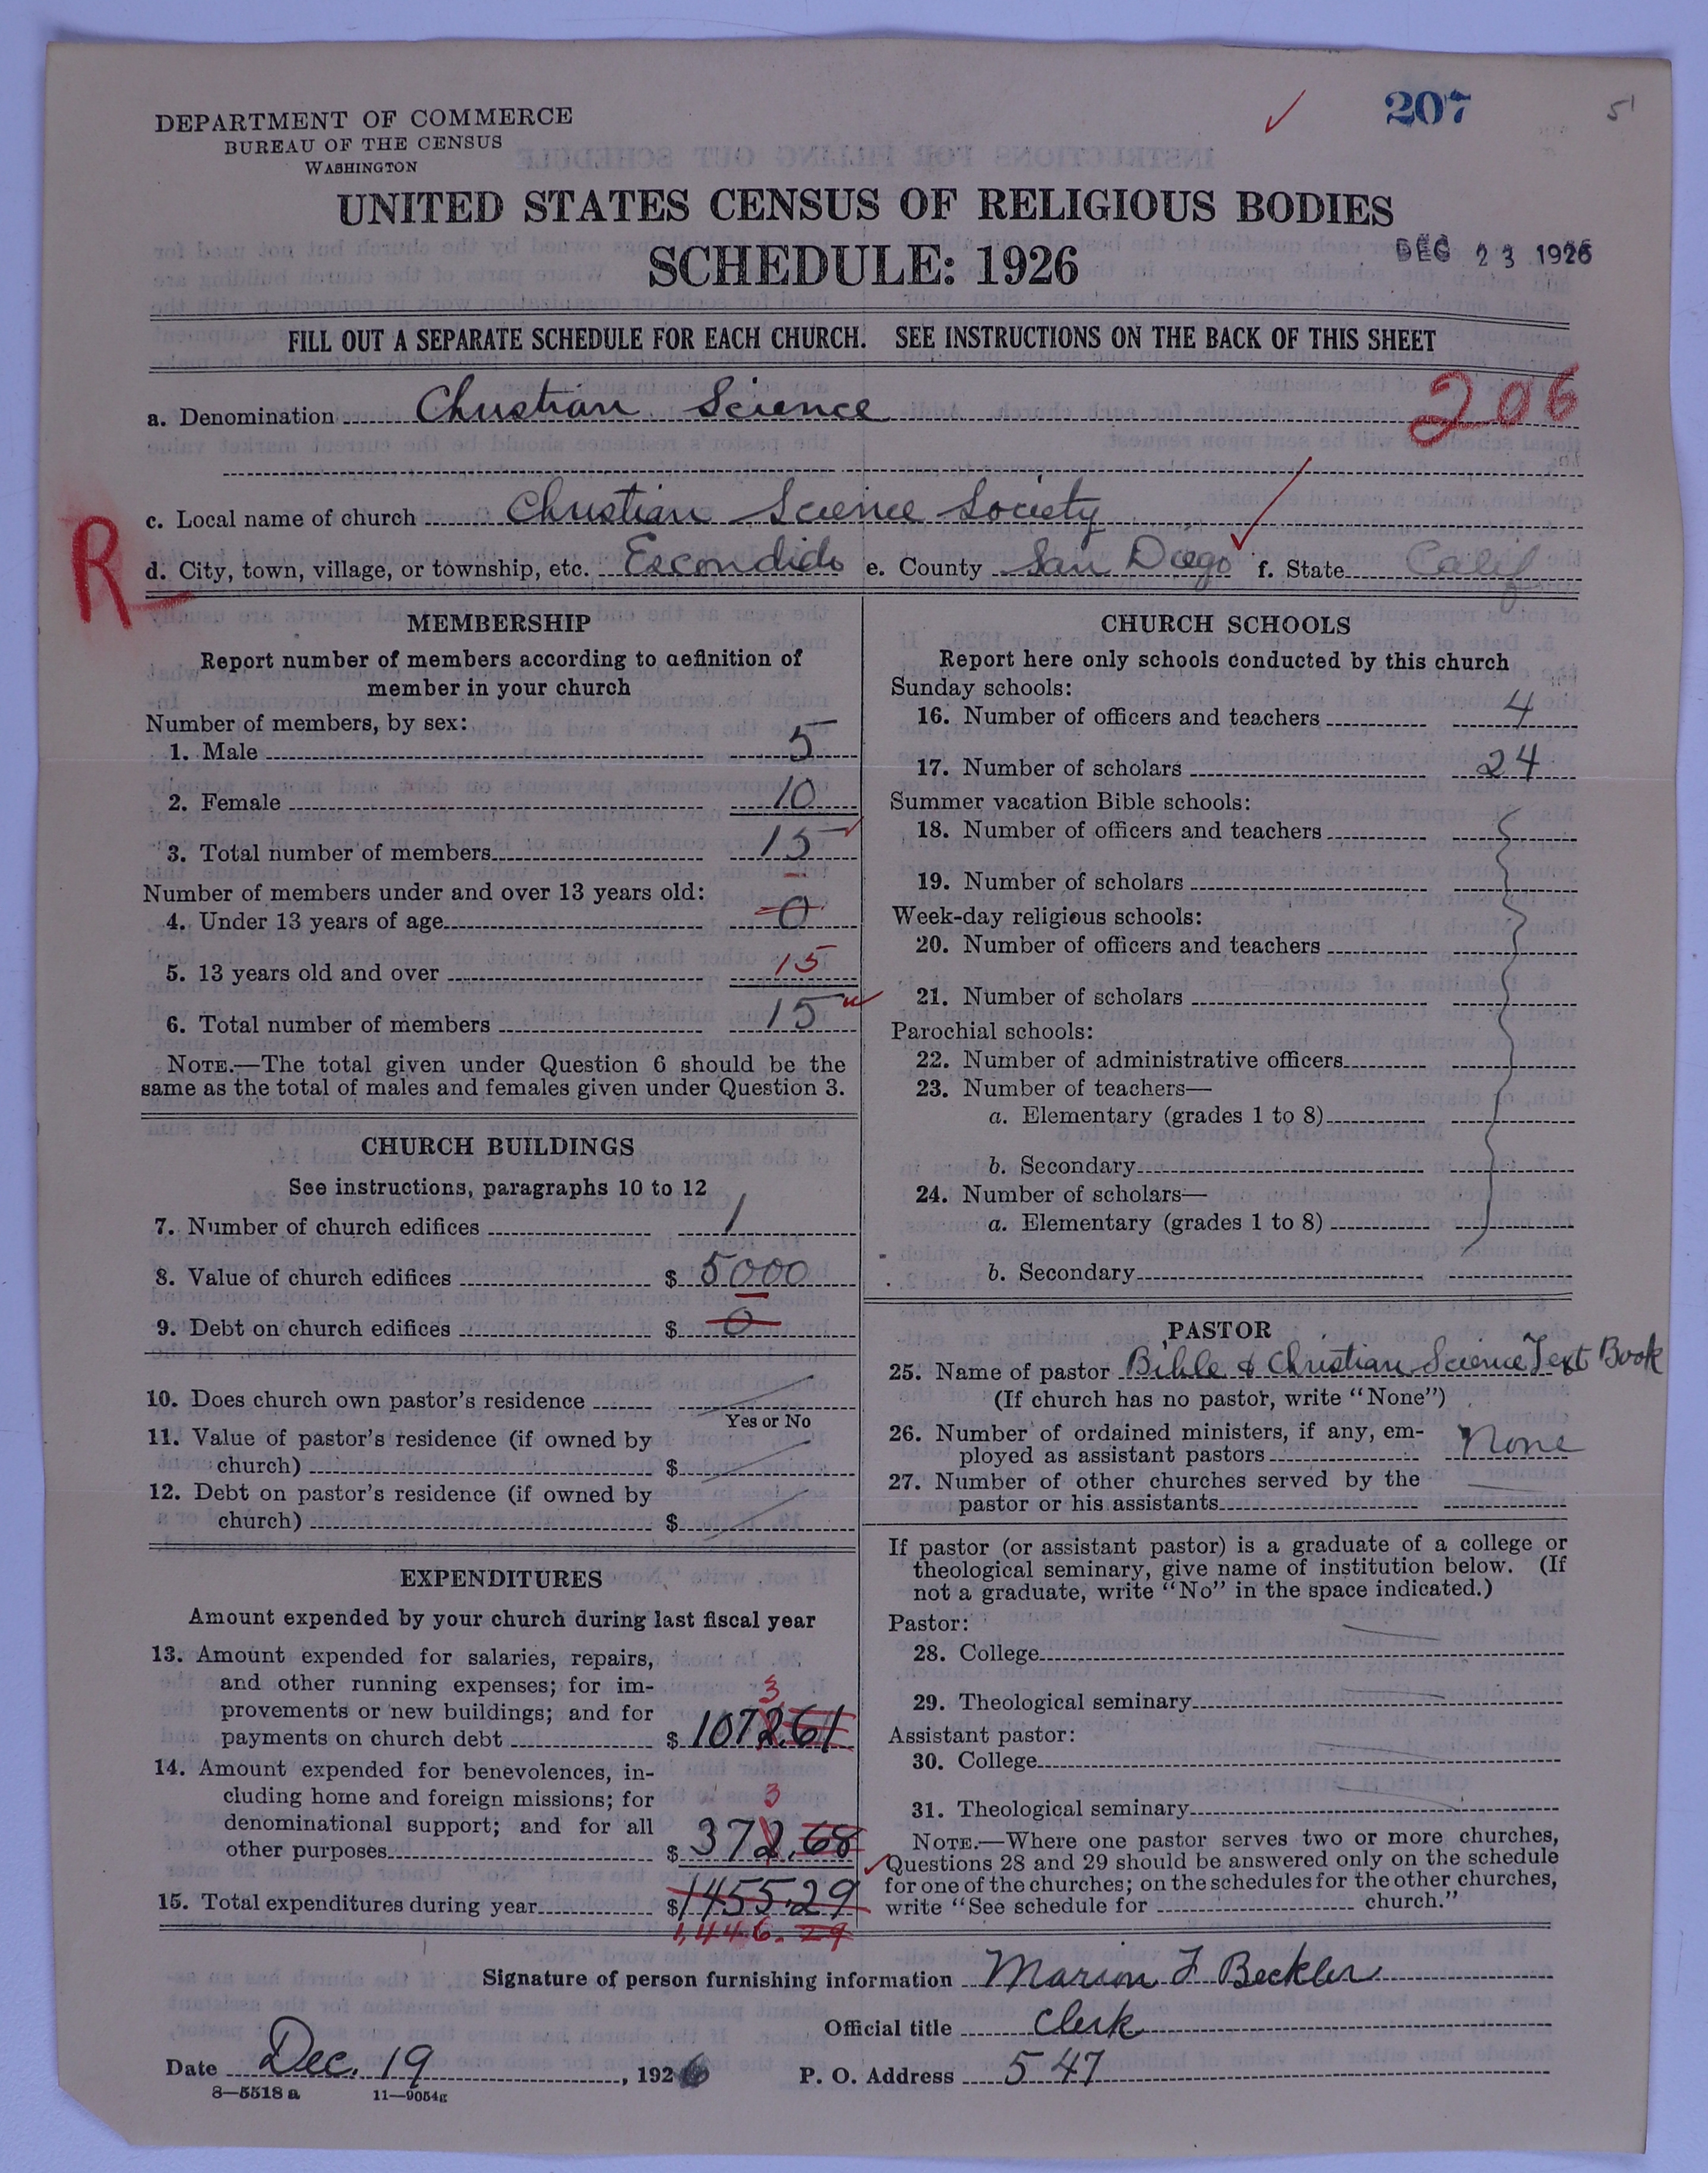 207
51
DEPARTMENT OF COMMERCE
BUREAU OF THE CENSUS
WASHINGTON
UNITED STATES CENSUS OF RELIGIOUS BODIES
SCHEDULE: 1926
DEC 23 1926
FILL OUT A SEPARATE SCHEDULE FOR EACH CHURCH. SEE INSTRUCTIONS ON THE BACK OF THIS SHEET
206
a. Denomination Christian Science
c. Local name of church Christian Science Society
R
d. City, town, village, or township, etc. Escondido e. County San Diego f. State Calif
MEMBERSHIP
Report number of members according to definition of
member in your church
Number of members, by sex:
1. Male 5
2. Female 10
3. Total number of members 15
Number of members under and over 13 years old:
4. Under 13 years of age 0
5. 13 years old and over 15
6. Total number of members 15
NOTE.—The total given under Question 6 should be the
same as the total of males and females given under Question 3.
CHURCH BUILDINGS
See instructions, paragraphs 10 to 12
7. Number of church edifices 1
8. Value of church edifices $ 5000
9. Debt on church edifices $ 0
10. Does church own pastor's residence
Yes or No
11. Value of pastor's residence (if owned by
church) $
12. Debt on pastor's residence (if owned by
church) $
EXPENDITURES
Amount expended by your church during last fiscal year
13. Amount expended for salaries, repairs,
and other running expenses; for im-
3
provements or new buildings; and for
payments on church debt $ 1072.61
14. Amount expended for benevolences, in-
cluding home and foreign missions; for
3
denominational support; and for all
other purposes $ 372.68
15. Total expenditures during year $1455.29
1,446.29
CHURCH SCHOOLS
Report here only schools conducted by this church
Sunday schools:
16. Number of officers and teachers 4
17. Number of scholars 24
Summer vacation Bible schools:
18. Number of officers and teachers
19. Number of scholars
Week-day religious schools:
20. Number of officers and teachers
21. Number of scholars
Parochial schools:
22. Number of administrative officers
23. Number of teachers—
a. Elementary (grades 1 to 8)
b. Secondary
24. Number of scholars—
a. Elementary (grades 1 to 8)
b. Secondary
PASTOR
25. Name of pastor Bible & Christian Science Text Book
(If church has no pastor, write "None")
26. Number of ordained ministers, if any, em-
ployed as assistant pastors None
27. Number of other churches served by the
pastor or his assistants
If pastor (or assistant pastor) is a graduate of a college or
theological seminary, give name of institution below. (If
not a graduate, write "No" in the space indicated.)
Pastor:
28. College
29. Theological seminary
Assistant pastor:
30. College
31. Theological seminary
NOTE.—Where one pastor serves two or more churches,
Questions 28 and 29 should be answered only on the schedule
for one of the churches; on the schedules for the other churches,
write "See schedule for church."
Signature of person furnishing information Marion F Beckler
Official title Clerk
Date Dec. 19, 1926 P. O. Address 547
8—5518 a 11—9054g